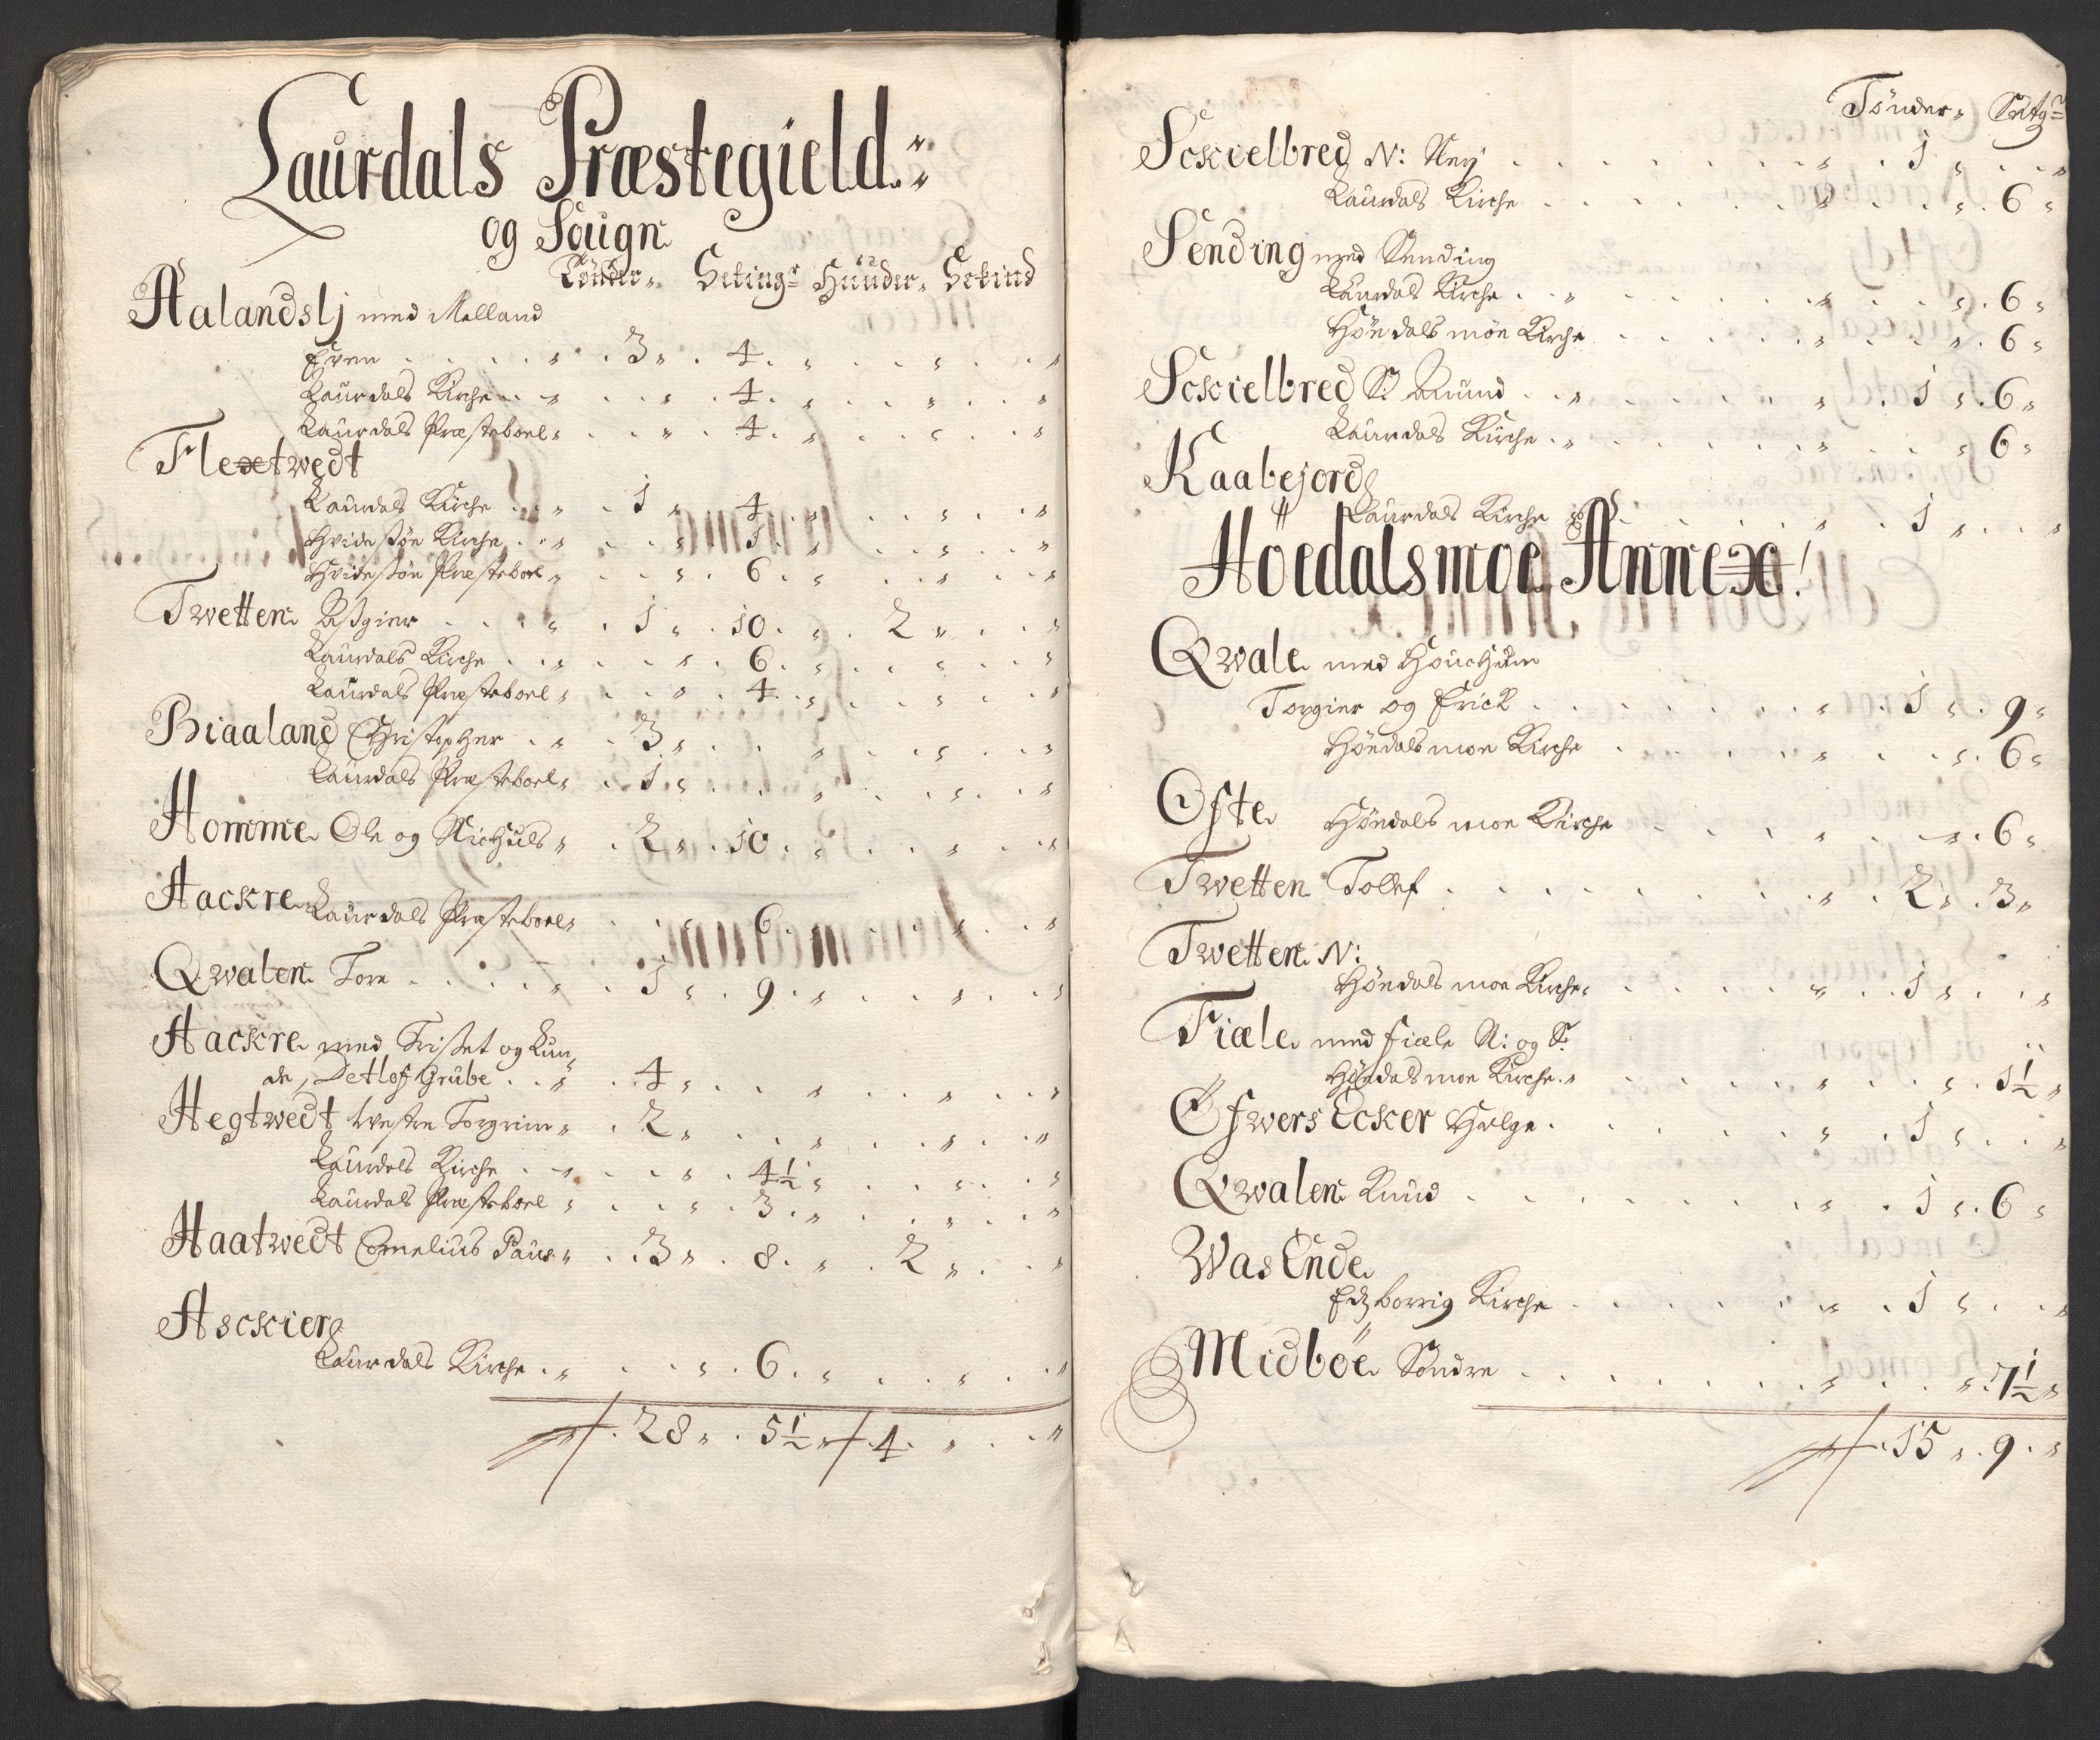 Laurdals Præstegield
og Sougn
Tönder, Seting Huuder, Sckind
Aalandslj med Melland
Even 3 4
Laurdals Kirche 4
Laurdals Præsteboel 4
Flextwedt
Laurdals Kirche 1 4
Hvidesöe Kirche 1
Hvidesöe Præsteboel 6
Twetten Assgier 1 10 2
Laurdals Kirche 6
Laurdals Præsteboel 4
Biaaland Christopher 3
Laurdals Præsteboel 1
Homme Ole og Nichuls 2 10
Aackre Laurdals Præsteboel 6
Qwalen Tore 1 9
Aackre med Trisset og Lun-
de, Detlof Grube 4
Hegtwedt westre Torgrim 2
Laurdals Kirche 4½
Laurdals Præsteboel 3
Haatwedt Cornelius Paus 3 8 2
Asckier
Laurdals Kirche 6
28 5½ 4
Tönder, Setg
Sckielbred N: Nerj 1
Laurdals Kirche 6
Sending med Sending
Laurdals Kirche 6
Höydals moe Kirche 6
Sckielbred S: Aamund 1 6
Laurdals Kirche 6
Kaabejord
Laurdals Kirche 1
Höidalsmoe Annex!
Qwale med Houchum
Torgier og Erick 1 9
Höydals moe Kirche 6
Ofte Höydals moe Kirche 6
Twetten Tollef 2 3
Twetten N:
Höydals moe Kirche 1
Fiæle med fiæle N: og S:
Höydals moe Kirche 1½
Öfwers Ecker Helge 1
Qwalen Knud 1 6
Was Ende
Edtzborrig Kirche 1
Midböe Söndre 7½
15 9